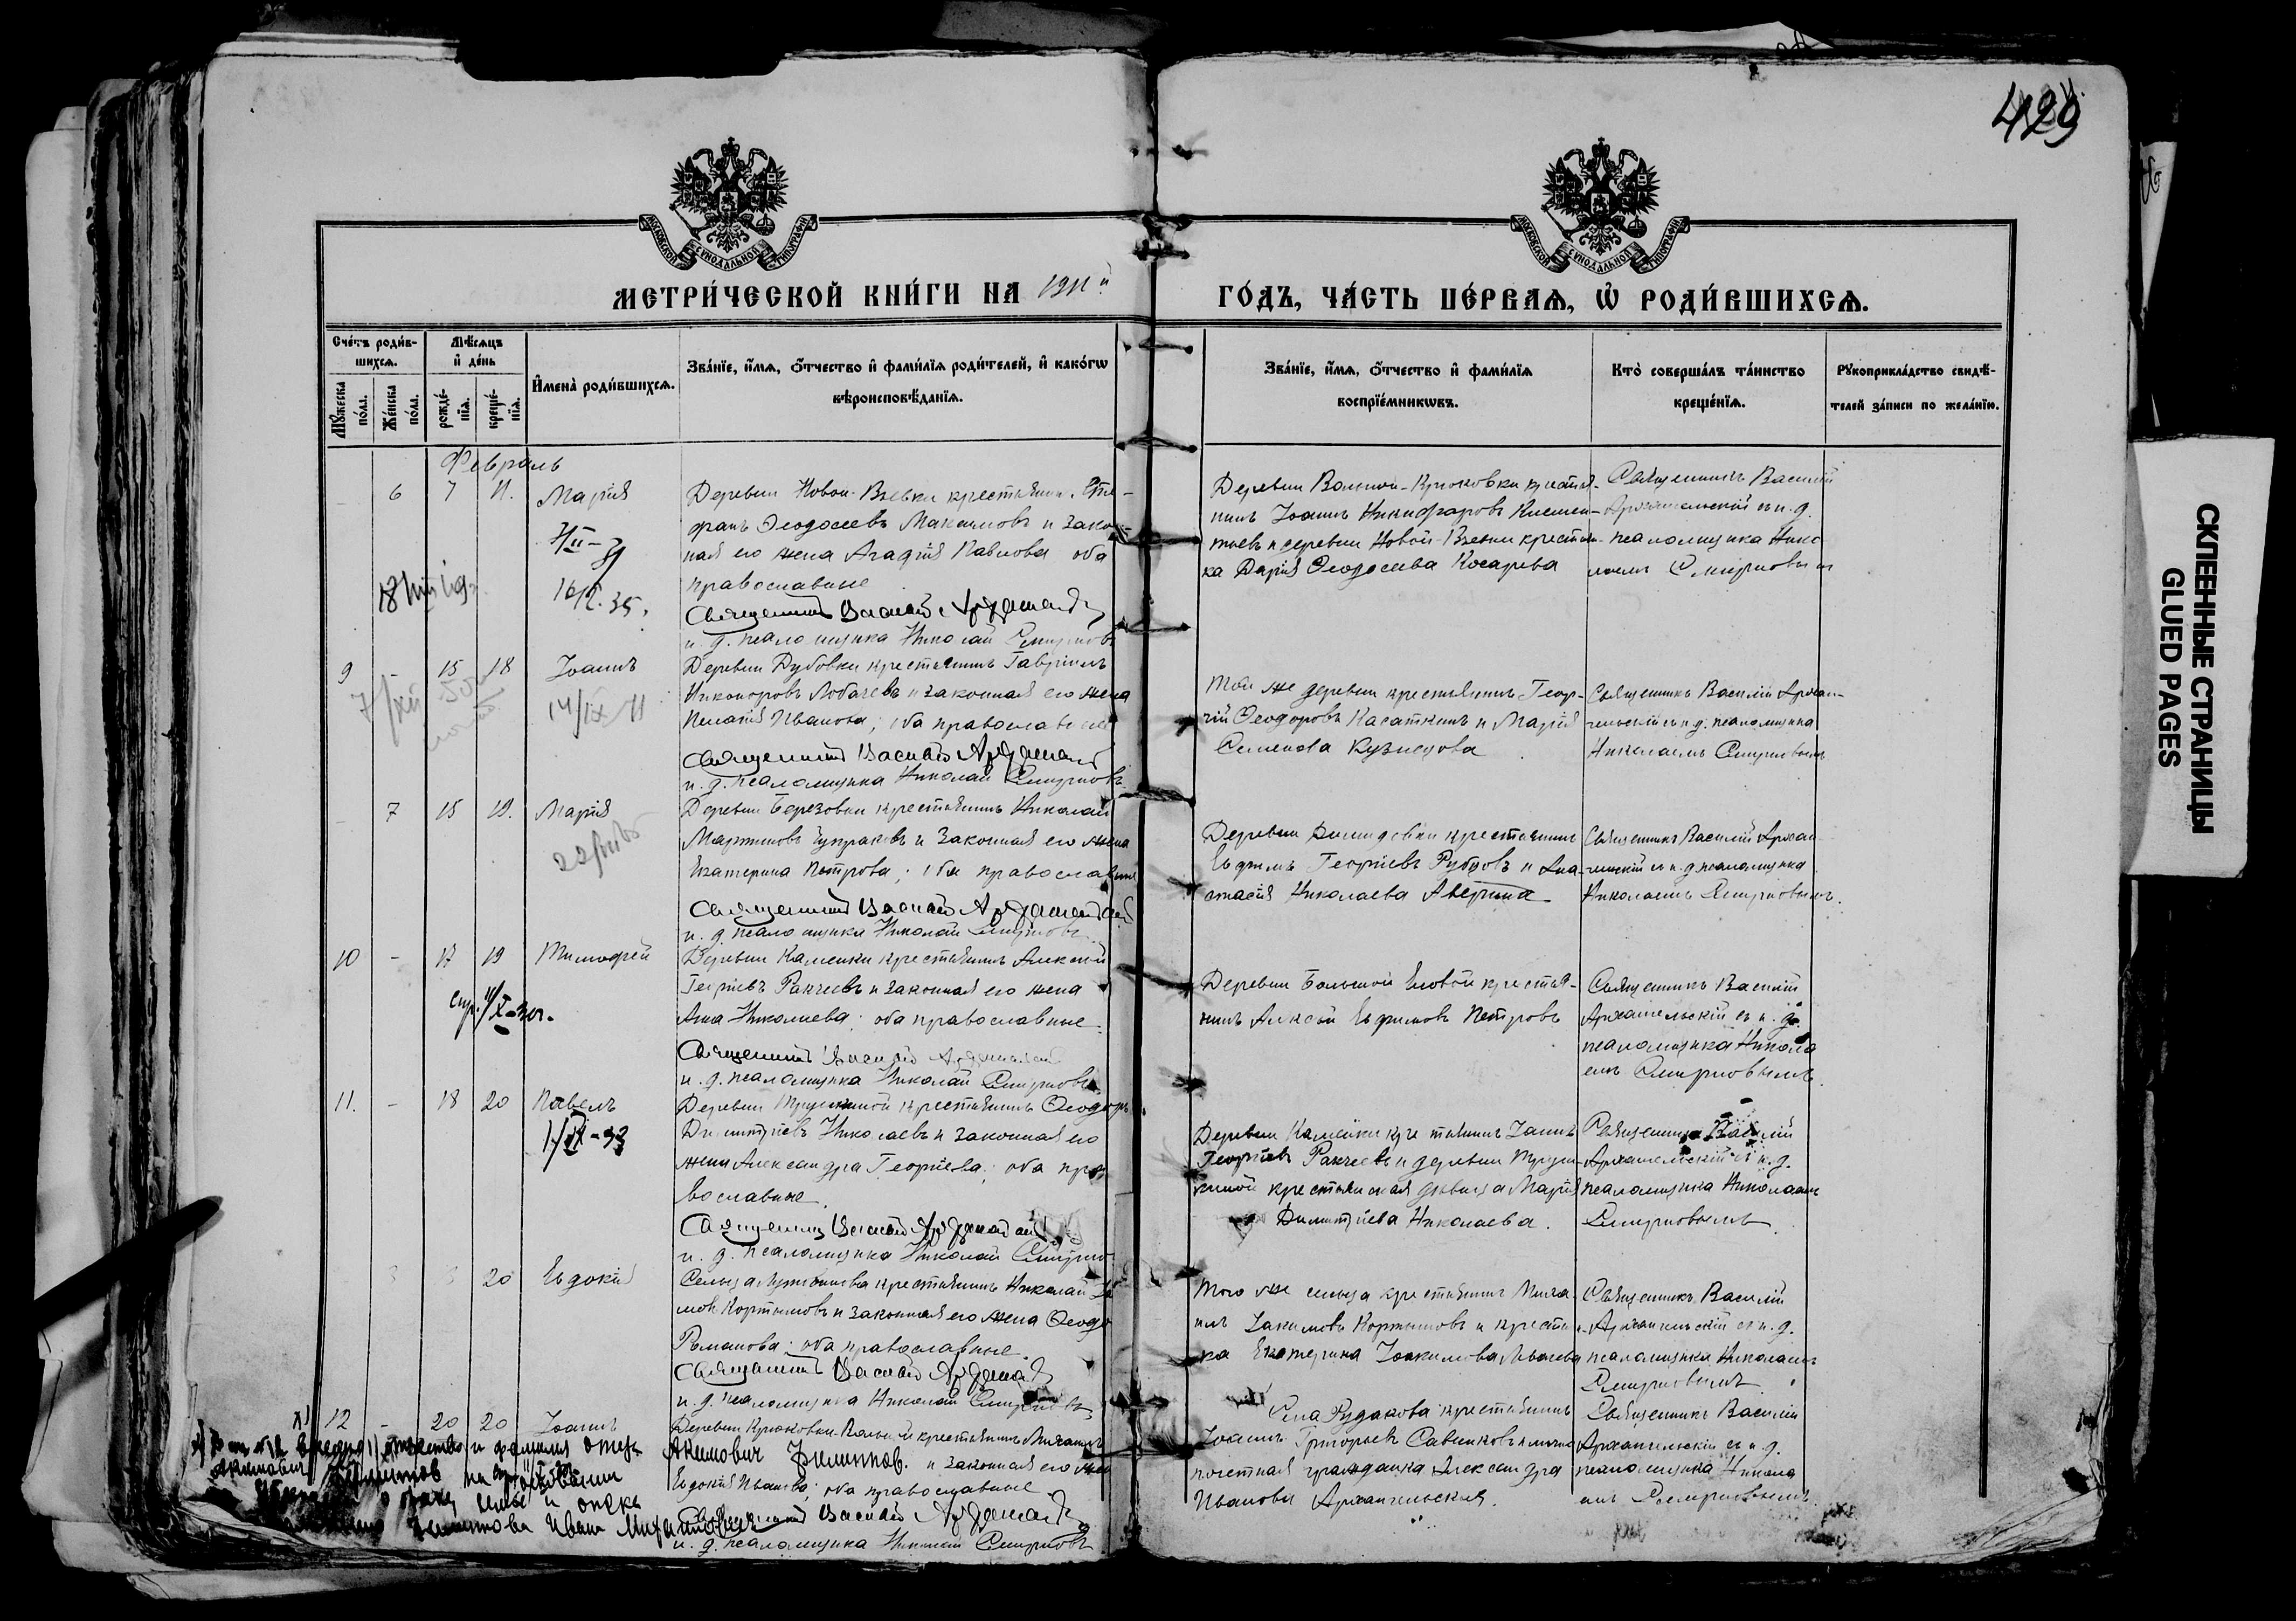 429
МОСКОВСКОЙ СѴНОДАЛЬНОЙ ТИПОГРАФІИ
МОСКОВСКОЙ СѴНОДАЛЬНОЙ ТИПОГРАФІИ
МЕТРИ́ЧЕСКОЙ КНИ́ГИ НА 1911й
ГО́ДЪ, ЧА́СТЬ ПЕ́РВАѦ, Ѡ҆ РОДИ́ВШИХСѦ.
Сче́тъ роди́в-
шихсѧ.
Мꙋ́жеска по́ла.
Же́нска по́ла.
Мѣ́сѧцъ
и҆ де́нь
рожде́-
нїѧ.
креще́-
нїѧ.
И҆мена̀ роди́вшихсѧ.
Зва́нїе, и҆́мѧ, ѻ҆́тчество и҆ фами́лїѧ роди́телей, и҆ како́гѡ
вѣроисповѣ́данїѧ.
Зва́нїе, и҆́мѧ, ѻ҆́тчество и҆ фами́лїѧ
воспрїе́мникѡвъ.
Кто̀ соверша́лъ та́инство
креще́нїѧ.
Рꙋкоприкла́дство свидѣ́-
телей за́писи по жела́нїю.
Февраль
- 6 7 11. Марія
Деревни Новой-Взевки крестьянинъ Сте-
фанъ Ѳеодосеевъ Максимовъ и закон-
ная его жена Агафія Павлова оба
православные
Священникъ Василій Архангельскій
и. д. псаломщика Николай Смирновъ
Деревни Вольной-Крюковки крестья-
нинъ Іоаннъ Никифоровъ Климен-
тьевъ и деревни Новой-Взевки крестьян-
ка Дарія Ѳеодосеева Косарева
Священникъ Василій
Архангельскій съ и. д.
псаломщика Нико-
лаемъ Смирновымъ
9 - 15 18 Іоаннъ
14/IX 11
Деревни Дубовки крестьянинъ Гавріилъ
Никоноровъ Лобачевъ и законная его жена
Пелагія Иванова; оба православные
Священникъ Василій Архангельскій
и. д. псаломщика Николай Смирновъ
Той же деревни крестьянинъ Геор-
гій Ѳеодоровъ Касаткинъ и Марія
Семенова Кузнецова
Священникъ Василій Архан-
гельскій съ и. д. псаломщика
Николаемъ Смирновымъ
- 7 15 19. Марія
Деревни Березовки крестьянинъ Николай
Мартиновъ и законная его жена
Екатерина Петрова; оба православные
Священникъ Василій Архангельскій
и. д. псаломщика Николай Смирновъ
Деревни Демидовки крестьянинъ
Ефимъ Георгіевъ Рубцовъ и Ана-
стасія Николаева Аверина
Священникъ Василій Архан-
гельскій съ и. д. псаломщика
Николаемъ Смирновымъ.
10 - 17 19 Тимофей
Деревни Каменки крестьянинъ Алексій
Георгіевъ Ракчеевъ и законная его жена
Анна Николаева; оба православные
Священникъ Василій Архангельскій
и. д. псаломщика Николай Смирновъ
Деревни Большой Еловой крестья-
нинъ Алексій Ефимовъ Петровъ
Священникъ Василій
Архангельскій съ и. д.
псаломщика Никола-
емъ Смирновымъ.
11. - 18 20 Павелъ
1/IX-33
Деревни Трушкиной крестьянинъ Ѳеодоръ
Димитріевъ Николаевъ и законная его
жена Александра Георгіева; оба пра-
вославные
Священникъ Василій Архангельскій
и. д. псаломщика Николай Смирновъ
Деревни Каменки крестьянинъ Іоаннъ
Георгіевъ Ракчеевъ и деревни Труш-
киной крестьянская дѣвица Марія
Димитріева Николаева.
Священникъ Василій
Архангельскій съ и. д.
псаломщика Николаемъ
Смирновымъ
20 Евдокія
крестьянинъ Николай
Кортышовъ и законная его жена
Романова; оба православные.
Священникъ Василій Архангельскій
и. д. псаломщика Николай Смирновъ
Того же сельца крестьянинъ Миха-
илъ Іакимовъ Кортышовъ и крестьян-
ка Екатерина Іоакимова
Священникъ Василій
Архангельскій съ и. д.
псаломщика Николаемъ
Смирновымъ
12 - 20 20 Іоаннъ
Деревни Крюковки-Вольной крестьянинъ Михаилъ
Акимович Филиппов. и законная его жена
Евдокія Иванова; оба православные
Священникъ Василій Архангельскій
и. д. псаломщика Николай Смирновъ
Села Рудакова крестьянинъ
Іоаннъ Григорьевъ Савенковъ и личная
почетная гражданка Александра
Иванова Архангельская.
Священникъ Василій
Архангельскій съ и. д.
псаломщика Никола-
емъ Смирновымъ.
отчество и фамилия отца
Акимович Филиппов на основании
Иван Михайлович
СКЛЕЕННЫЕ СТРАНИЦЫ
GLUED PAGES